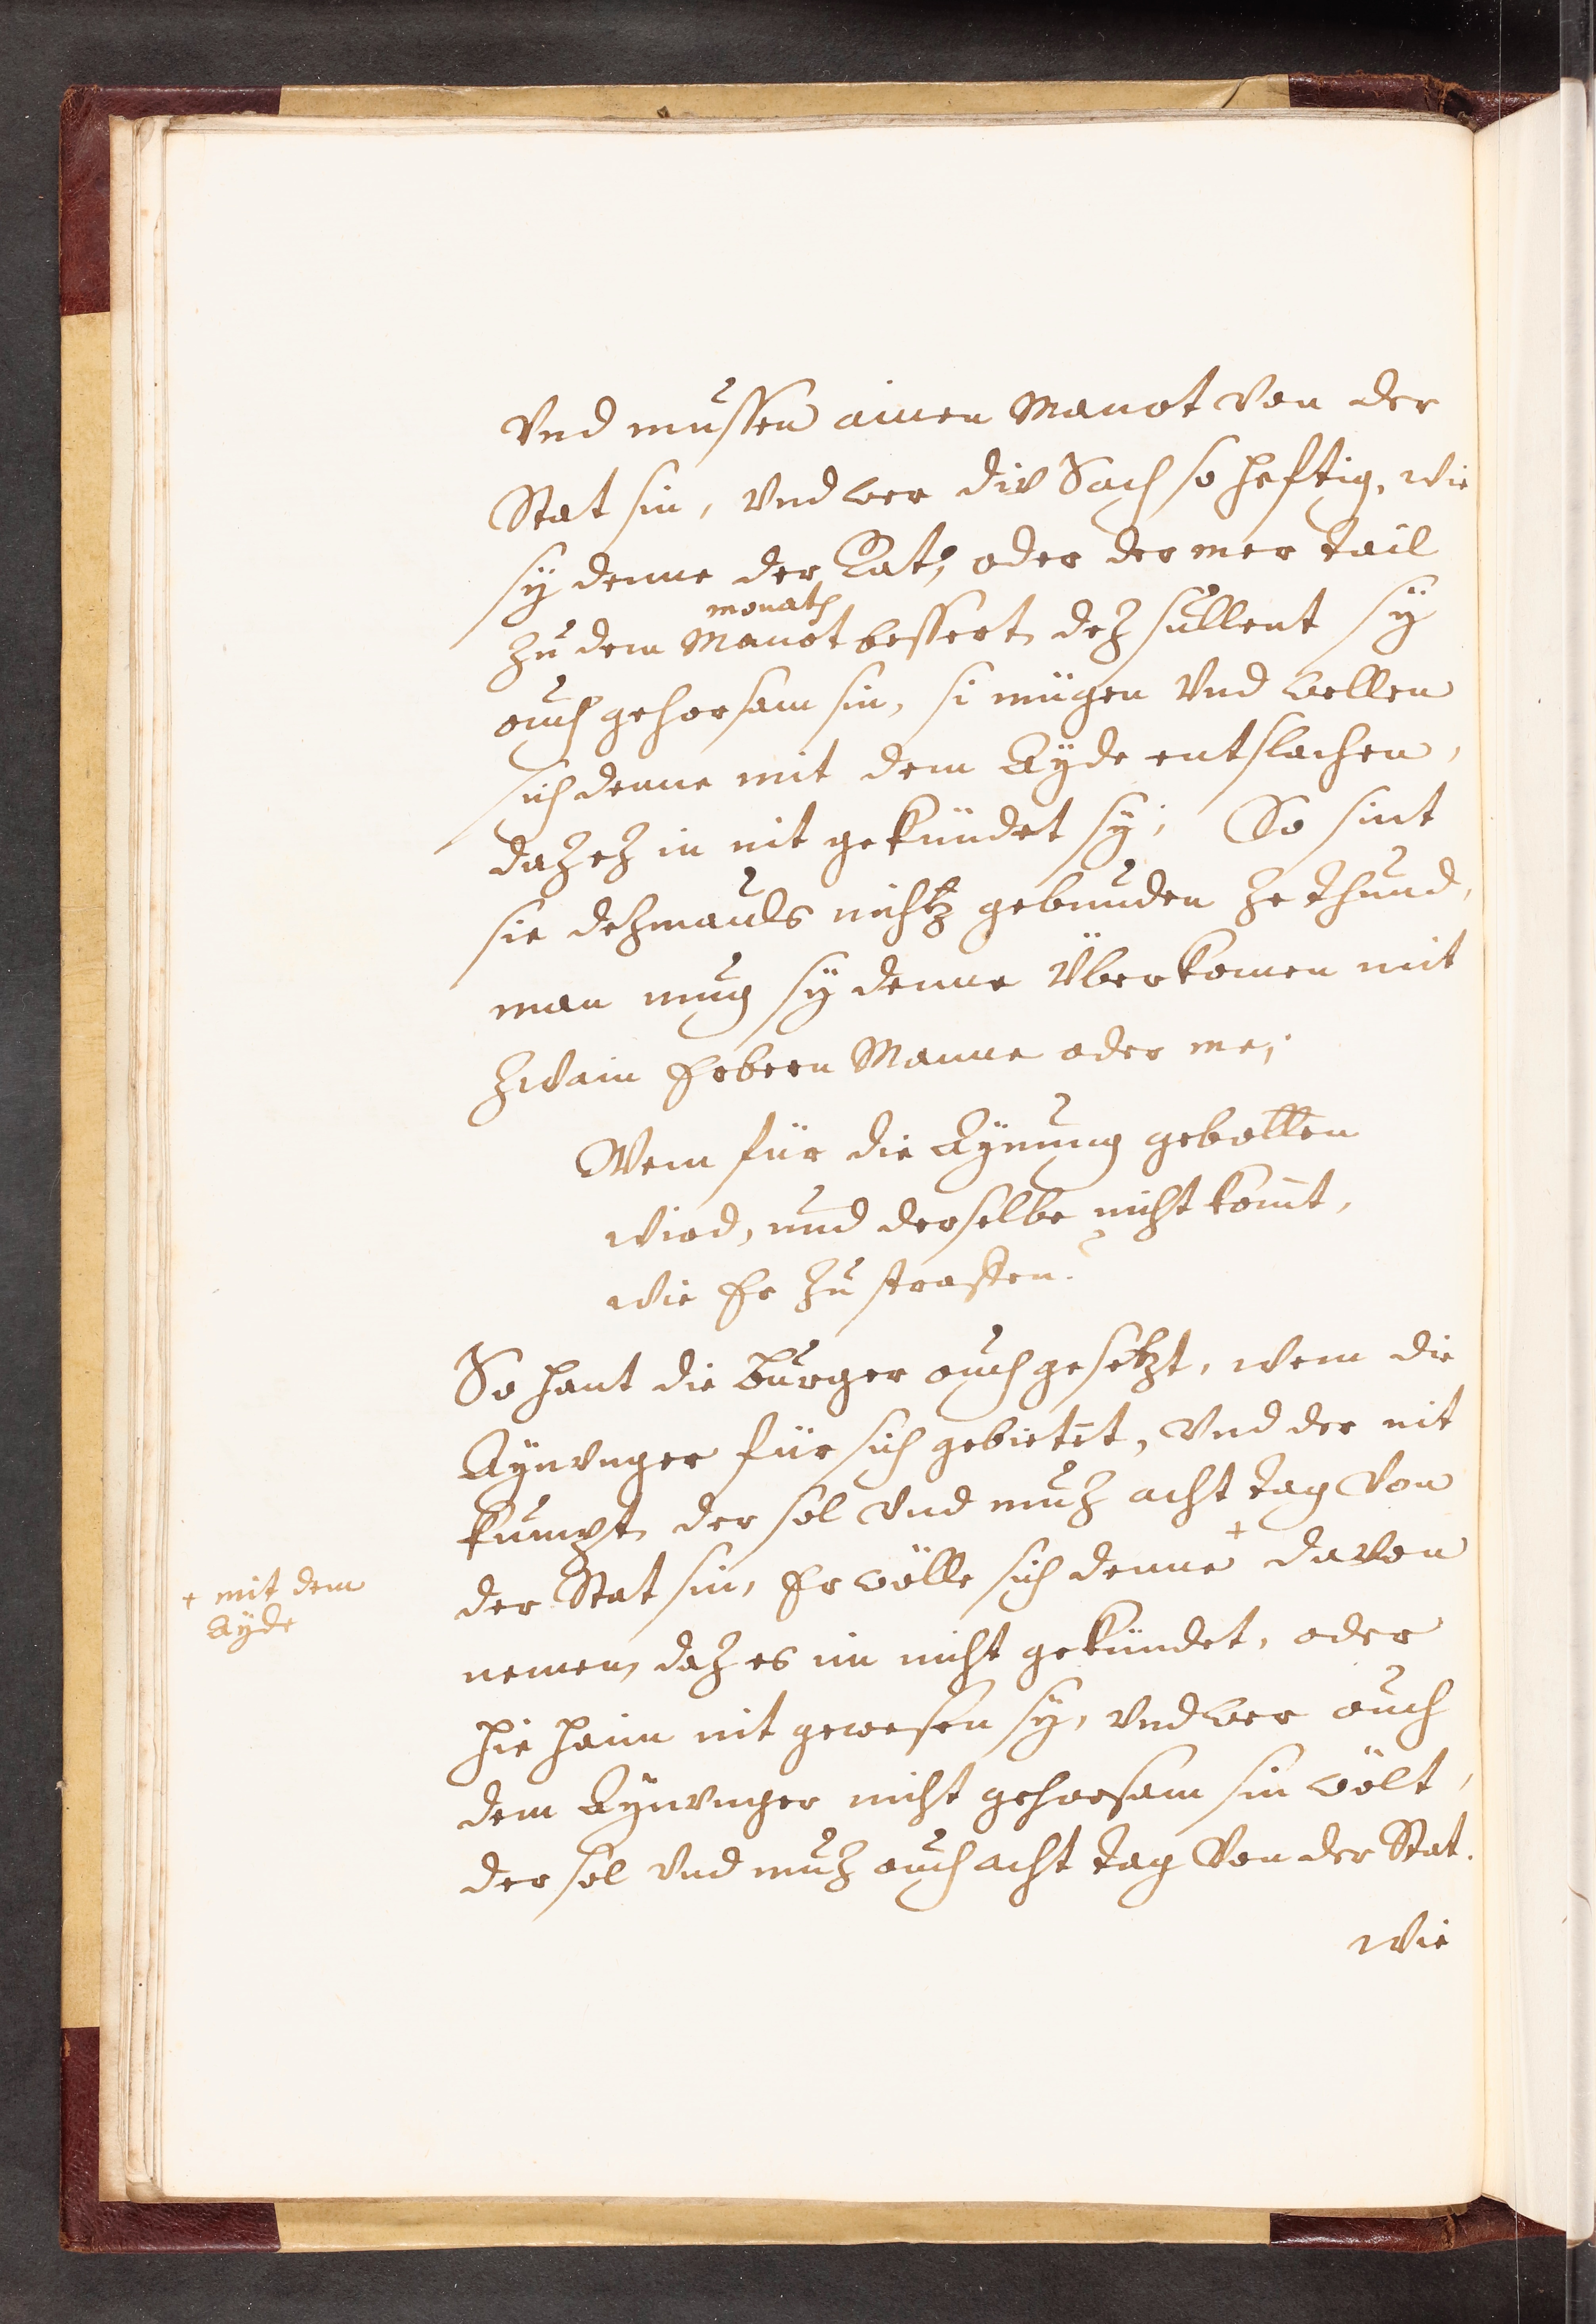 Vnd mussen ainen Manot von der
Stat sin, vnd wer div Sach so hefftig, wie
sÿ denne der Rat, oder der mer tail
monath
zu dem Manot bessert, dez sullent sÿ
ouch gehorsam sin, si mügen vnd wellen
sich denne mit dem Aÿde entslachen,
daz ez in nit gekündet sÿ; So sint
sie dezmauls nichtz gebunden ze thund,
man mug sÿ denne überkomen mit
zwain Erbern Manne oder me;
Wem für die Aÿnung gebotten
wird, und derselbe nicht kom̄t,
wie Er zu straffen.
So hant die Burger ouch gesetzt, wem die
Aÿnvnger für sich gebietent, vnd der nit
kumpt, der sol vnd muz acht tag von
der Stat sin, Er wölle sich denne + davon
+ mit dem
Aÿde
nemen, daz es im nicht gekündet, oder
hie haim nit gewesen sÿ, vnd wer ouch
dem Aÿnvnger nicht gehorsam sin wölt,
der sol vnd muz ouch acht tag von der Stat.
wie